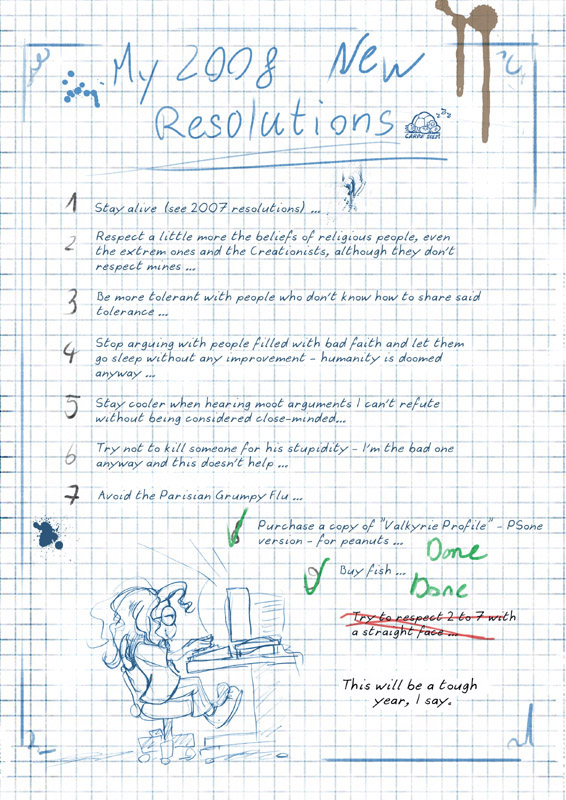 My 2008 New
Resolutions
CARPE DIEM
1 Stay alive (see 2007 resolutions) ...
2 Respect a little more the beliefs of religious people, even
the extrem ones and the Creationists, although they don't
respect mines ...
3 Be more tolerant with people who don't know how to share said
tolerance ...
4 Stop arguing with people filled with bad faith and let them
go sleep without any improvement - humanity is doomed
anyway ...
5 Stay cooler when hearing moot arguments I can't refute
without being considered close-minded...
6 Try not to kill someone for his stupidity - I'm the bad one
anyway and this doesn't help ...
7 Avoid the Parisian Grumpy Flu ...
8 Purchase a copy of "Valkyrie Profile" - PSone
version - for peanuts ...
Done
9 Buy fish ...
Done
Try to respect 2 to 7 with
a straight face ...
This will be a tough
year, I say.